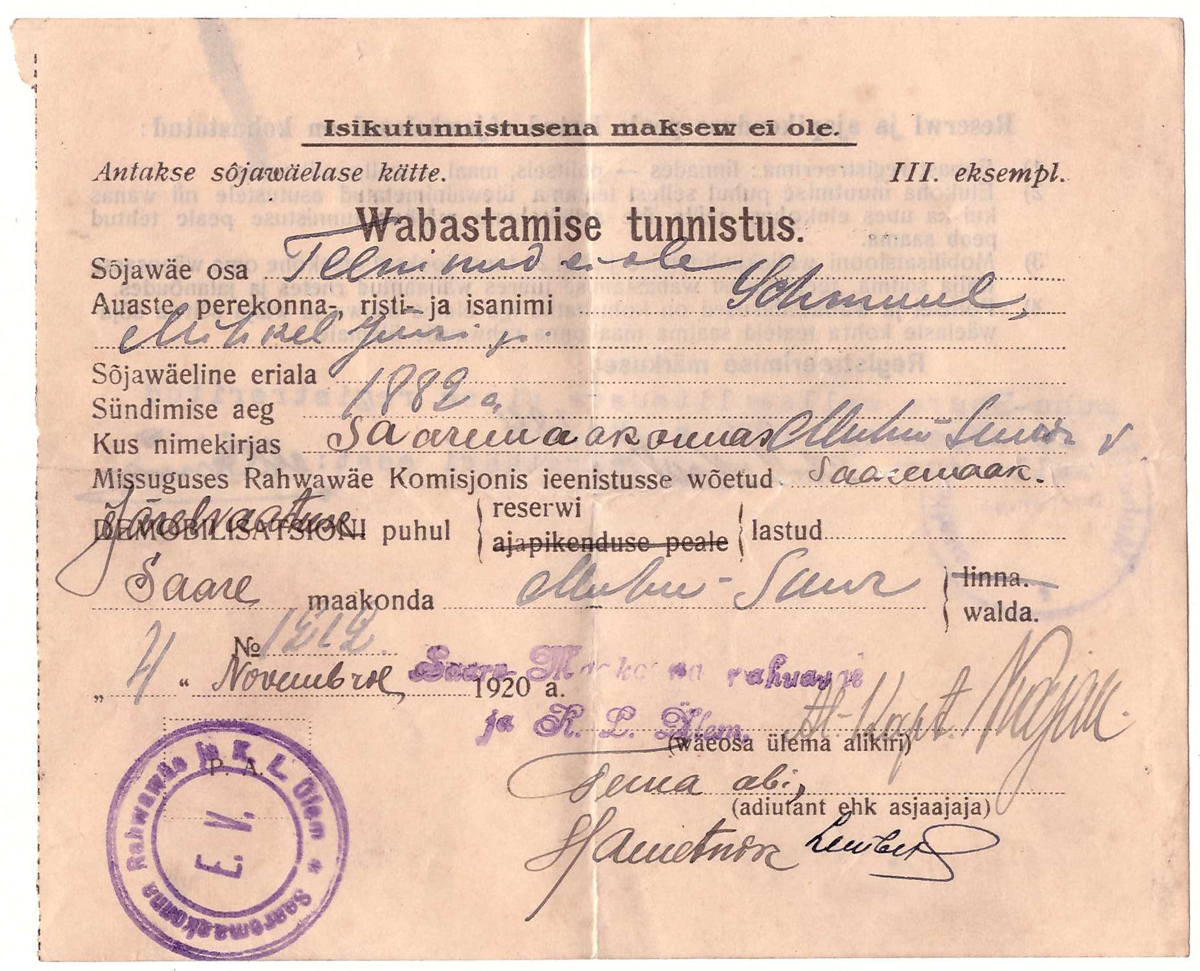 Isikutunnistusena maksew ei ole.
Antakse sõjawäelase kätte. III. eksempl.
Wabastamise tunnistus.
Sõjawäe osa Teeninud ei ole
Auaste perekonna-, risti- ja isanimi Schmuul,
Mihkel Jüri p.
Sõjawäeline eriala
Sündimise aeg 1882 a.
Kus nimekirjas Saaremaakonnas Muhu-Suur v
Missuguses Rahwawäe Komisjonis ieenistusse wõetud Saaremaak.
Järelvaatuse
DEMOBILISATSIONI puhul reserwi ajapikenduse peale lastud
Saare maakonda Muhu-Suur linna. walda.
№ 1212.
„ 4 “ Novembril 1920 a.
Saare Maakonna rahwawäe
ja K. L. Ülem.
A-Kapt.
(wäeosa ülema alikiri)
Tema abi,
(adiutant ehk asjaajaja)
Ametnik
P. A.
Saaremaakonna Rahwawäe ja K. L. Ülem *
E. V.